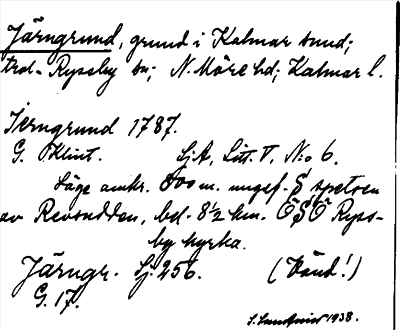 Järngrund, grund i Kalmar sund;
trol. Ryssby sn; N. Möre hd; Kalmar l.
Jerngrund 1787.
G. Klint. Sj.A, Litt. V, N:o 6.
Läge omkr. 800 m. ungef. S spetsen
av Revsudden, bel. 8½ km. ÖSÖ Ryss-
by kyrka.
Järngr. Sj. 256. (Vänd!)
G. 17.
1938.